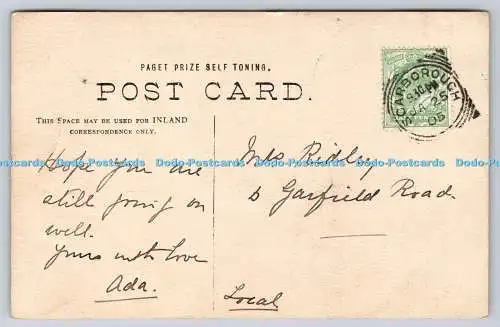 PAGET PRIZE SELF TONING.
POST CARD.
THIS SPACE MAY BE USED FOR INLAND
CORRESPONDENCE ONLY.
SCARBOROUGH
25
05
Hope you are
still going on
well.
Yours with love
Ada.
Mrs Ridley
Garfield Road.
Local
Dodo-Postcards Dodo-Postcards Dodo-Postcards Dodo-Postcards